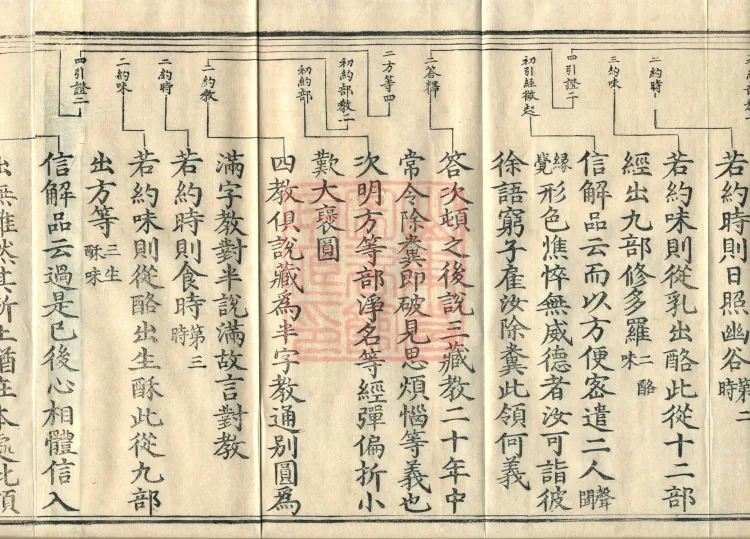 二約時
若約時則日照幽谷第二時
三約味
若約味則從乳出酪此從十二部
經出九部修多羅二酪味
四引證二
初引經徵起
信解品云而以方便密遣二人聲聞
緣覺形色憔悴無威德者汝可詣彼
徐語窮子雇汝除糞此領何義
二答釋
答次頓之後說三藏教二十年中
常令除糞即破見思煩惱等義也
二方等四
初約部教二
初約部
次明方等部淨名等經彈偏折小
歎大襃圓
二約教
四教俱說藏爲半字教通別圓爲
滿字教對半說滿故言對教
二約時
若約時則食時第三時
二約味
若約味則從酪出生酥此從九部
出方等三生酥味
四引證二
信解品云過是已後心相體信入
出無難然其所止猶在本處此領